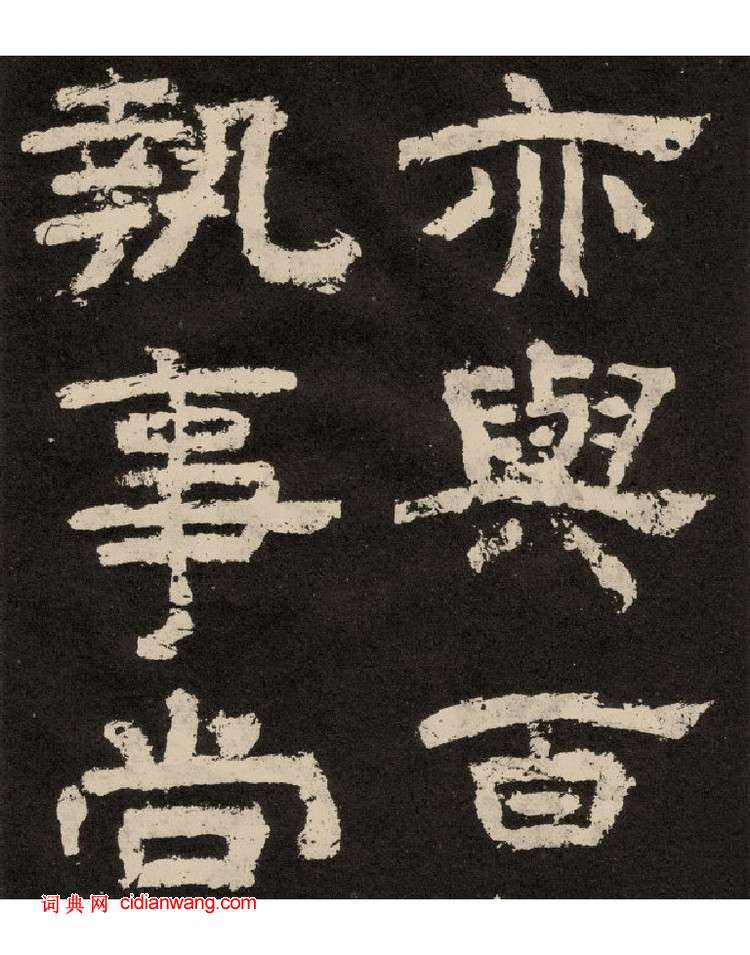 亦與百
執事尚
词典网 cidianwang.com